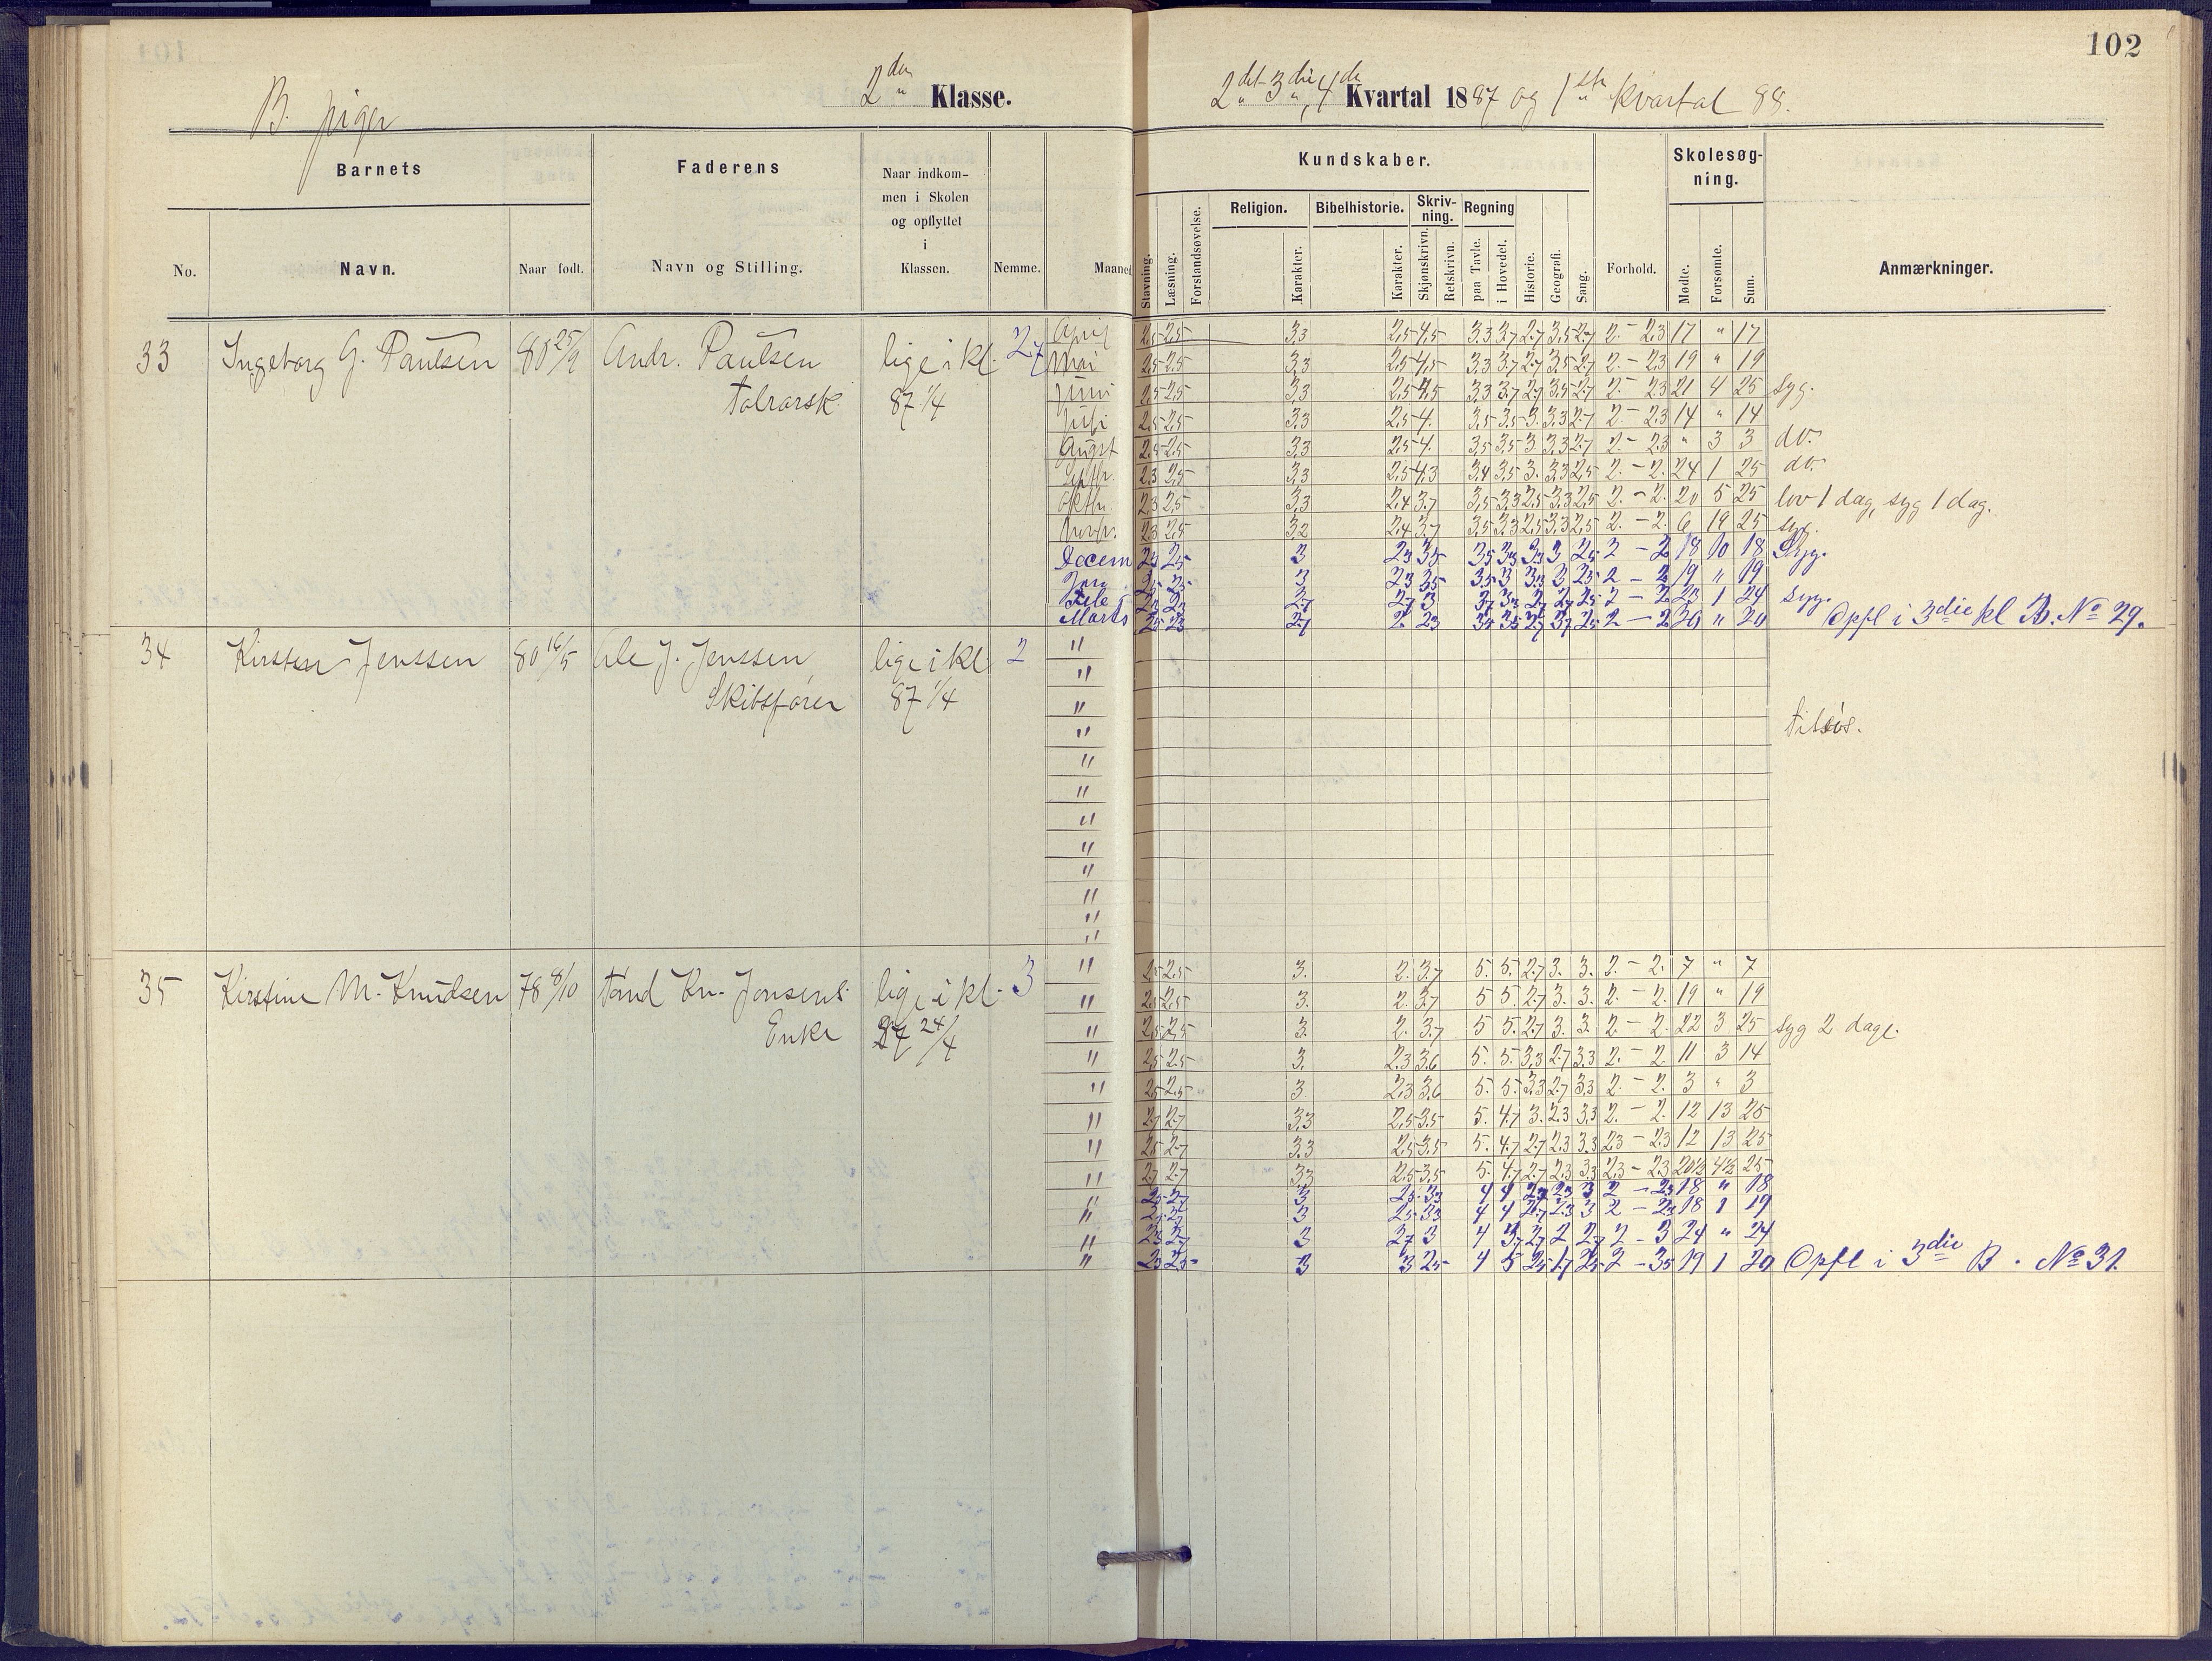 102
B. piger
2den Klasse.
2det 3die, 4de Kvartal 1887 og 1ste Kvartal 88.
Barnets
Faderens
Naar indkommen i Skolen og opflyttet i Klassen.
Nemme.
Maaned
Kundskaber.
Forhold.
Skolesøgning.
Anmærkninger.
No.
Navn.
Naar født.
Navn og Stilling.
Stavning.
Læsning.
Forstandsøvelse.
Religion.
Karakter.
Bibelhistorie.
Karakter.
Skrivning.
Skjønskrivn.
Retskrivn.
Regning
paa Tavle.
i Hovedet.
Historie.
Geografi.
Sang.
Mødte.
Forsømte.
Sum.
33 Ingeborg G. Paulsen 80 25/9 Andr. Paulsen lige i kl. 2,7
87 1/4
April 2,5 2,5 3,3 2,5 4,5 3,3 3,7 2,7 3,5 2,7 2. - 2,3 17 " 17
Mai 2,5 2,5 3,3 2,5 4,5 3,3 3,7 2,7 3,5 2,7 2 - 2,3 19 " 19
Juni 2,5 2,5 3,3 2,5 4,5 3,3 3,7 2,7 3,5 2,7 2. - 2,3 21 4 25 syg.
Juli 2,5 2,5 3,3 2,5 4. 3,5 3,5 3. 3,3 2,7 2 - 2,3 14 " 14
Augst 2,5 2,5 3,3 2,5 4. 3,5 3,5 3 3,3 2,7 2 - 2,3 " 3 3 do.
Septr. 2,3 2,5 3,3 2,5 4,3 3,4 3,5 3. 3,3 2,5 2. - 2. 24 1 25 do.
Oktbr. 2,3 2,5 3,3 2,4 3,7 3,5 3,3 2,5 3,3 2,5 2. - 2. 20 5 25 lov 1 dag, syg 1 dag.
Novbr. 2,3 2,5 3,2 2,4 3,7 3,5 3,3 2,5 3,3 2,5 2. - 2. 6 19 25 syg.
Decem 3 2 - 2 18 10 18 Syg.
Jan 3 2 - 2 19 " 19
1 24 syg.
Marts " 20 Opfl i 3die kl B. No 29.
34 Kirsten Jenssen 80 16/5 Ole J. Jenssen lige i Kl 2
Skibsfører 87 1/4
tilsøs.
35 Kirstine M. Knudsen 78 8/10 Kn. Jonsens lige i kl. 3
Enke 87 24/4
" 2,5 2,5 3. 2. 3,7 5. 5. 2,7 3. 3. 2. - 2. 7 " 7
" 2,5 2,5 3. 2. 3,7 5 5. 2,7 3. 3. 2. - 2. 19 " 19
" 2,5 2,5 3. 2. 3,7 5 5. 2,7 3. 3. 2 - 2. 22 3 25 syg 2 dage.
" 2,5 2,5 3. 2,3 3,6 5. 5. 3,3 2,7 3,3 2. - 2. 11 3 14
" 2,5 2,5 3 2,3 3,6 5. 5. 3,3 2,7 3,3 2 - 2. 3 " 3
" 2,7 2,7 3,3 2,5 3,5 5. 4,7 3. 2,3 3,3 2. - 2. 12 13 25
" 2,5 2,7 3,3 2,5 3,5 5. 4,7 2,7 2,3 3,3 2,3 - 2,3 12 13 25
" 2,7 2,7 3,3 2,5 3,5 5. 4,7 2,7 2,3 3,3 2,3 - 2,3 20½ 4½ 25
" 3 4 4 2 - 18 " 18
" 3 4 4 2 - 18 1 19
" 3 2,7 3 4 2 - 3 24 " 24
" 3 3 2,5 4 5 2 - 3,5 19 1 20 Opfl i 3die B. No 31.